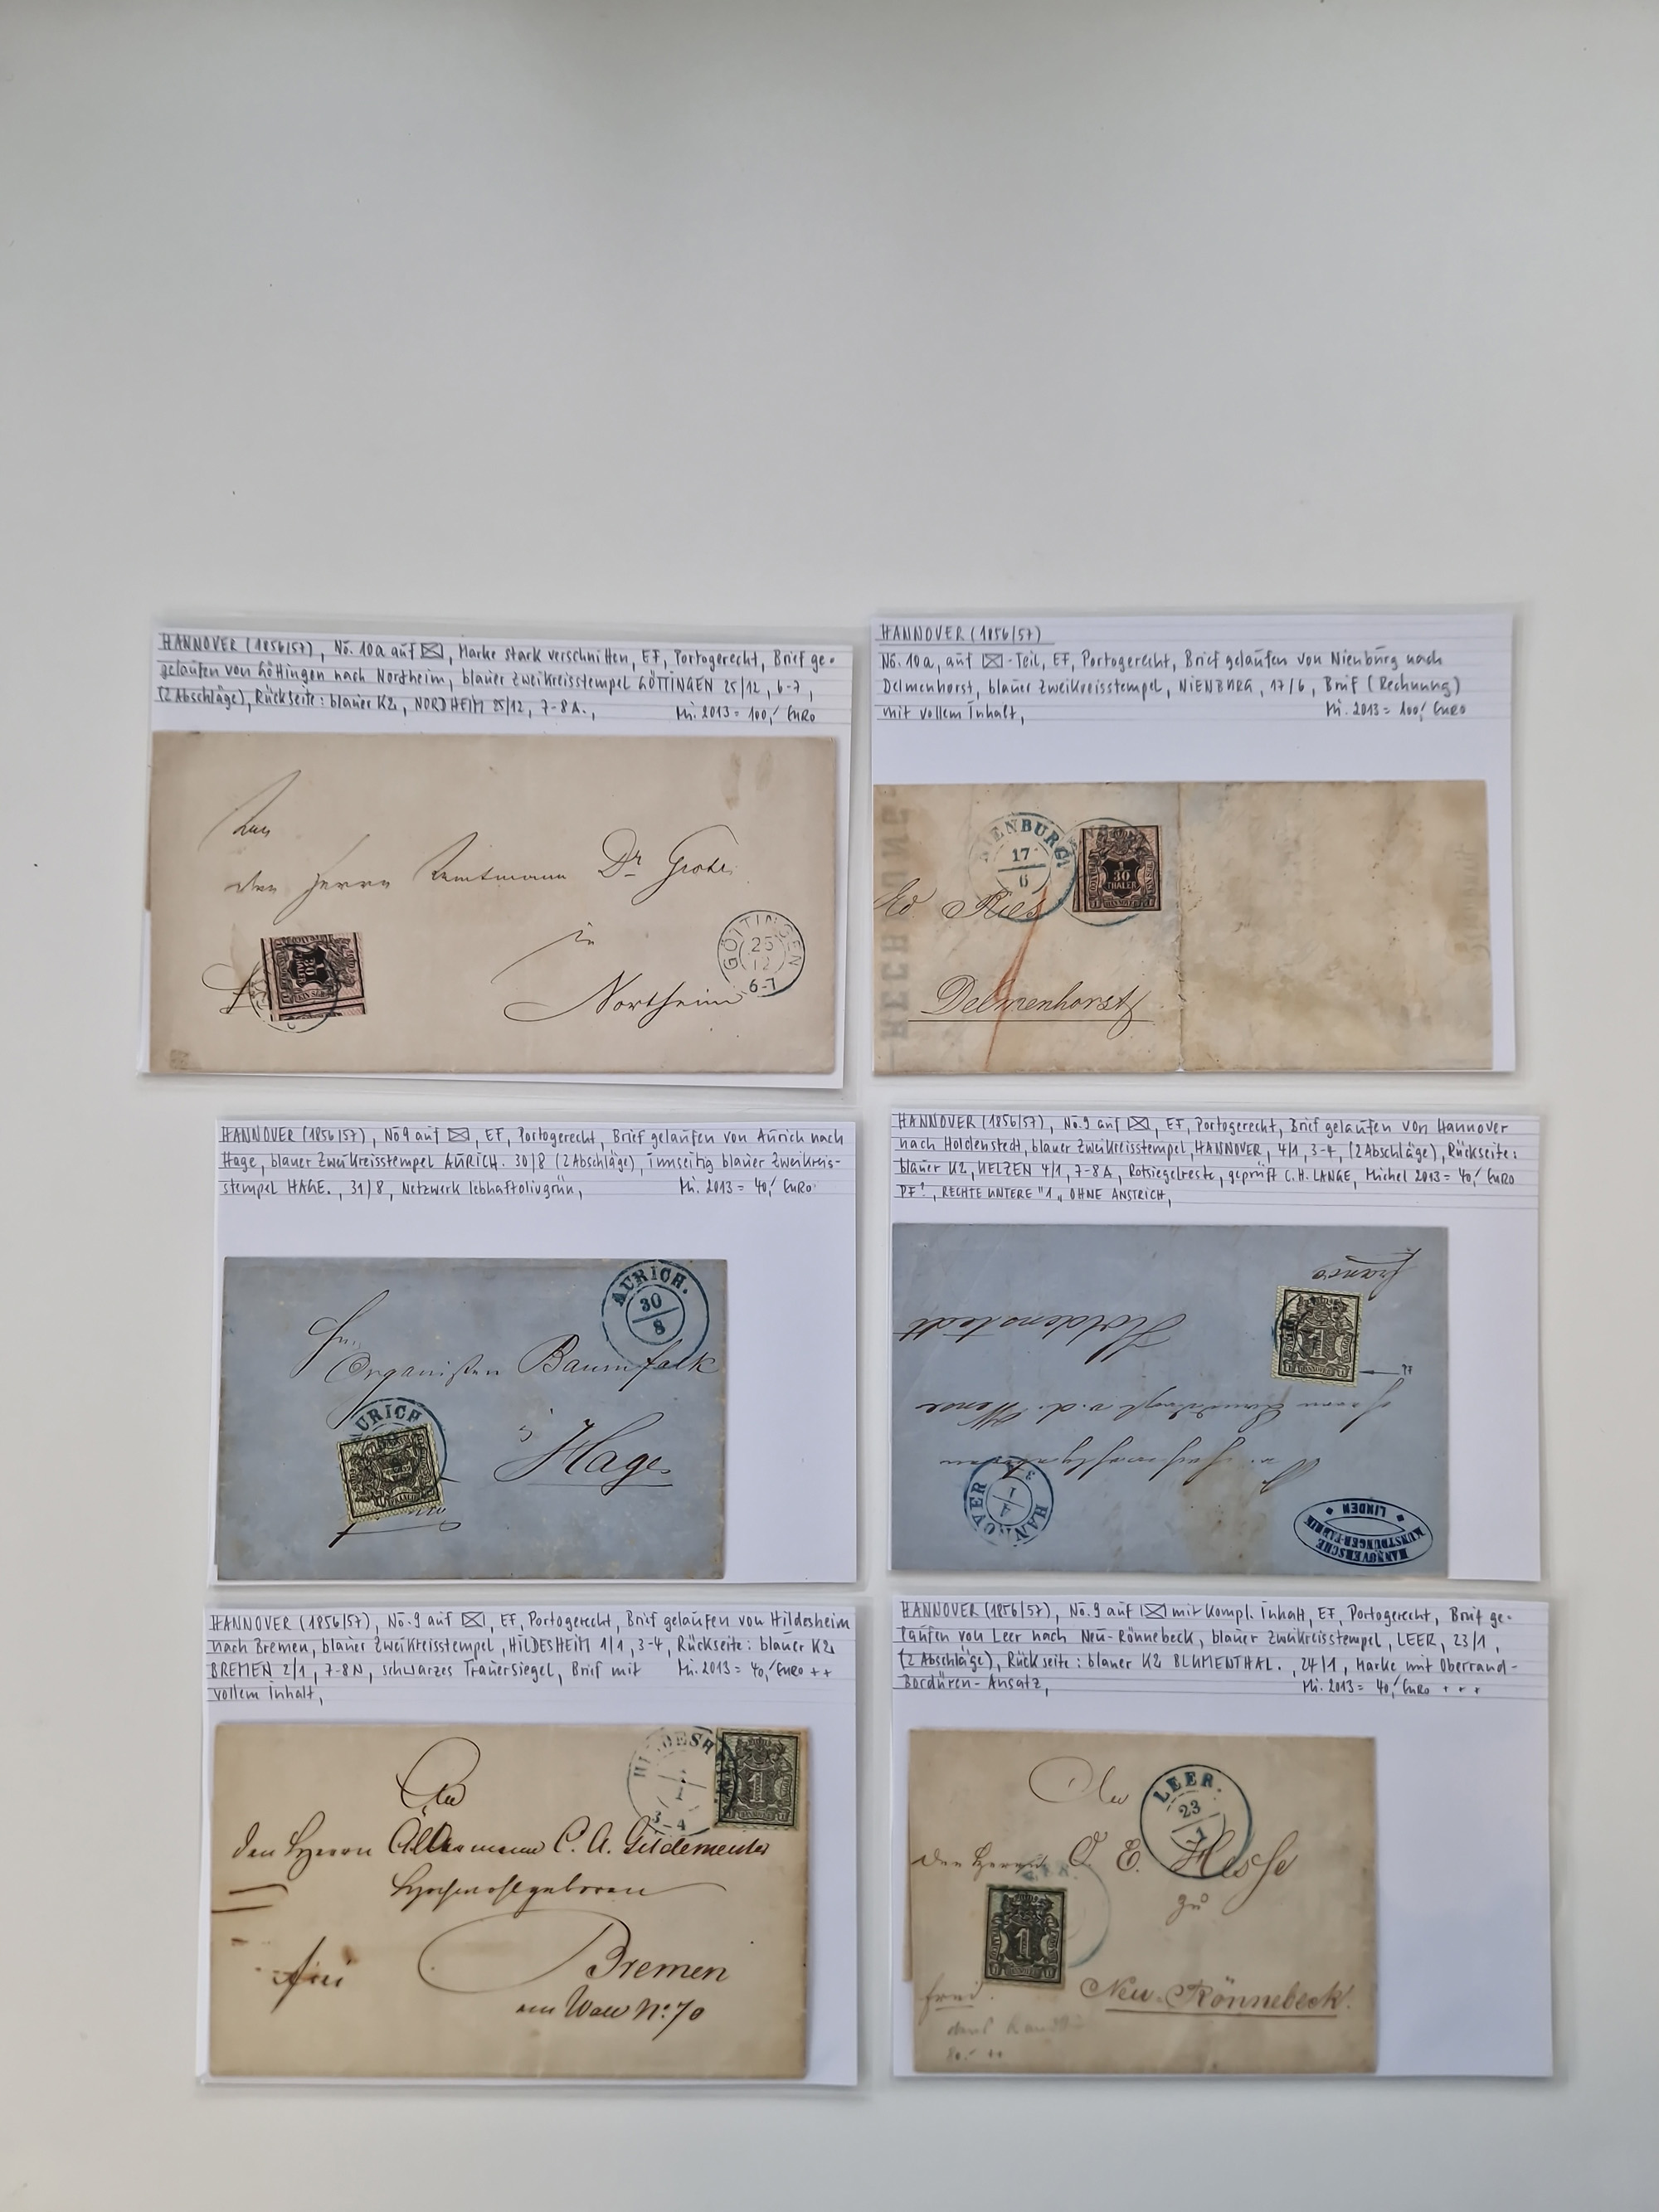 HANNOVER (1856/57), No. 10a auf ✉, Marke stark verschnitten, EF, Portogerecht, Brief ge-
gelaufen von Göttingen nach Northeim, blauer Zweikreisstempel GÖTTINGEN 25/12, 6-7,
(2 Abschläge), Rückseite: blauer K2, NORDHEIM 25/12, 7-8 A., Mi. 2013 = 100,- EURO
den Herrn Dr. Grote
in
Northeim
GÖTTINGEN
25
12
6-7
1
30
THALER
HANNOVER (1856/57)
No. 10a, auf ✉-Teil, EF, Portogerecht, Brief gelaufen von Nienburg nach
Delmenhorst, blauer Zweikreisstempel, NIENBURG, 17/6, Brief (Rechnung)
mit vollem Inhalt, Mi. 2013 = 100,- EURO
RECHNUNG
NIENBURG
17
6
1
30
THALER
HANNOVER
Ries
Delmenhorst
HANNOVER (1856/57), No 9 auf ✉, EF, Portogerecht, Brief gelaufen von Aurich nach
Hage, blauer Zweikreisstempel AURICH. 30/8 (2 Abschläge), innseitig blauer Zweikreis-
stempel HAGE., 31/8, Netzwerk lebhaftolivgrün, Mi. 2013 = 40,- EURO
AURICH.
30
8
Organisten Baumfalk
Hage
AURICH
FRANCO
HANNOVER (1856/57), No. 9 auf ✉, EF, Portogerecht, Brief gelaufen von Hannover
nach Holdenstedt, blauer Zweikreisstempel HANNOVER, 4/1, 3-4, (2 Abschläge), Rückseite:
blauer K2, UELZEN 4/1, 7-8 A, Rotsiegelreste, geprüft C.H. LANGE, Michel 2013 = 40,- EURO
PF?, RECHTE UNTERE "1" OHNE ANSTRICH,
franco
Holdenstedt
1
HANNOVER
PF
Herrn v. d. Wense
HANNOVER
4
1
3
HANNOVERSCHE
KUNSTDÜNGER-FABRIK
LINDEN
HANNOVER (1856/57), No. 9 auf ✉, EF, Portogerecht, Brief gelaufen von Hildesheim
nach Bremen, blauer Zweikreisstempel, HILDESHEIM 1/1, 3-4, Rückseite: blauer K2
BREMEN 2/1, 7-8 N, schwarzes Trauersiegel, Brief mit Mi. 2013 = 40,- EURO ++
vollem Inhalt,
HILDESH
1
3-4
1
An
den Herrn Altermann C. A. Gildemeister
Hochwohlgeboren
Bremen
am Wall No. 70
frei
HANNOVER (1856/57), No. 9 auf ✉ mit kompl. Inhalt, EF, Portogerecht, Brief ge-
laufen von Leer nach Neu-Rönnebeck, blauer Zweikreisstempel, LEER, 23/1,
(2 Abschläge), Rückseite: blauer K2 BLUMENTHAL., 24/1, Marke mit Oberrand-
Bordüren-Ansatz, Mi. 2013 = 40,- EURO + + +
An
LEER.
23
1
den Herrn E. Hesse
zu
1
HANNOVER
frei.
Neu-Rönnebeck.